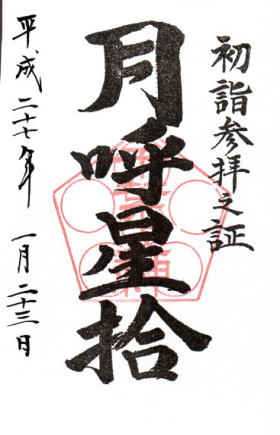 初詣参拝之証
月呼星拾
平成二十七年 一月二十三日